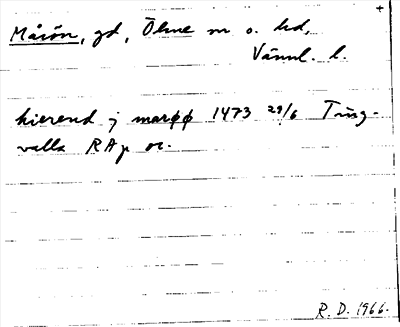 +
Måsön, gd, Ölme sn o. hd,
Värml. l.
hierend j marøø 1473 29/6 Ting-
valla RAp or.
R. D. 1966.